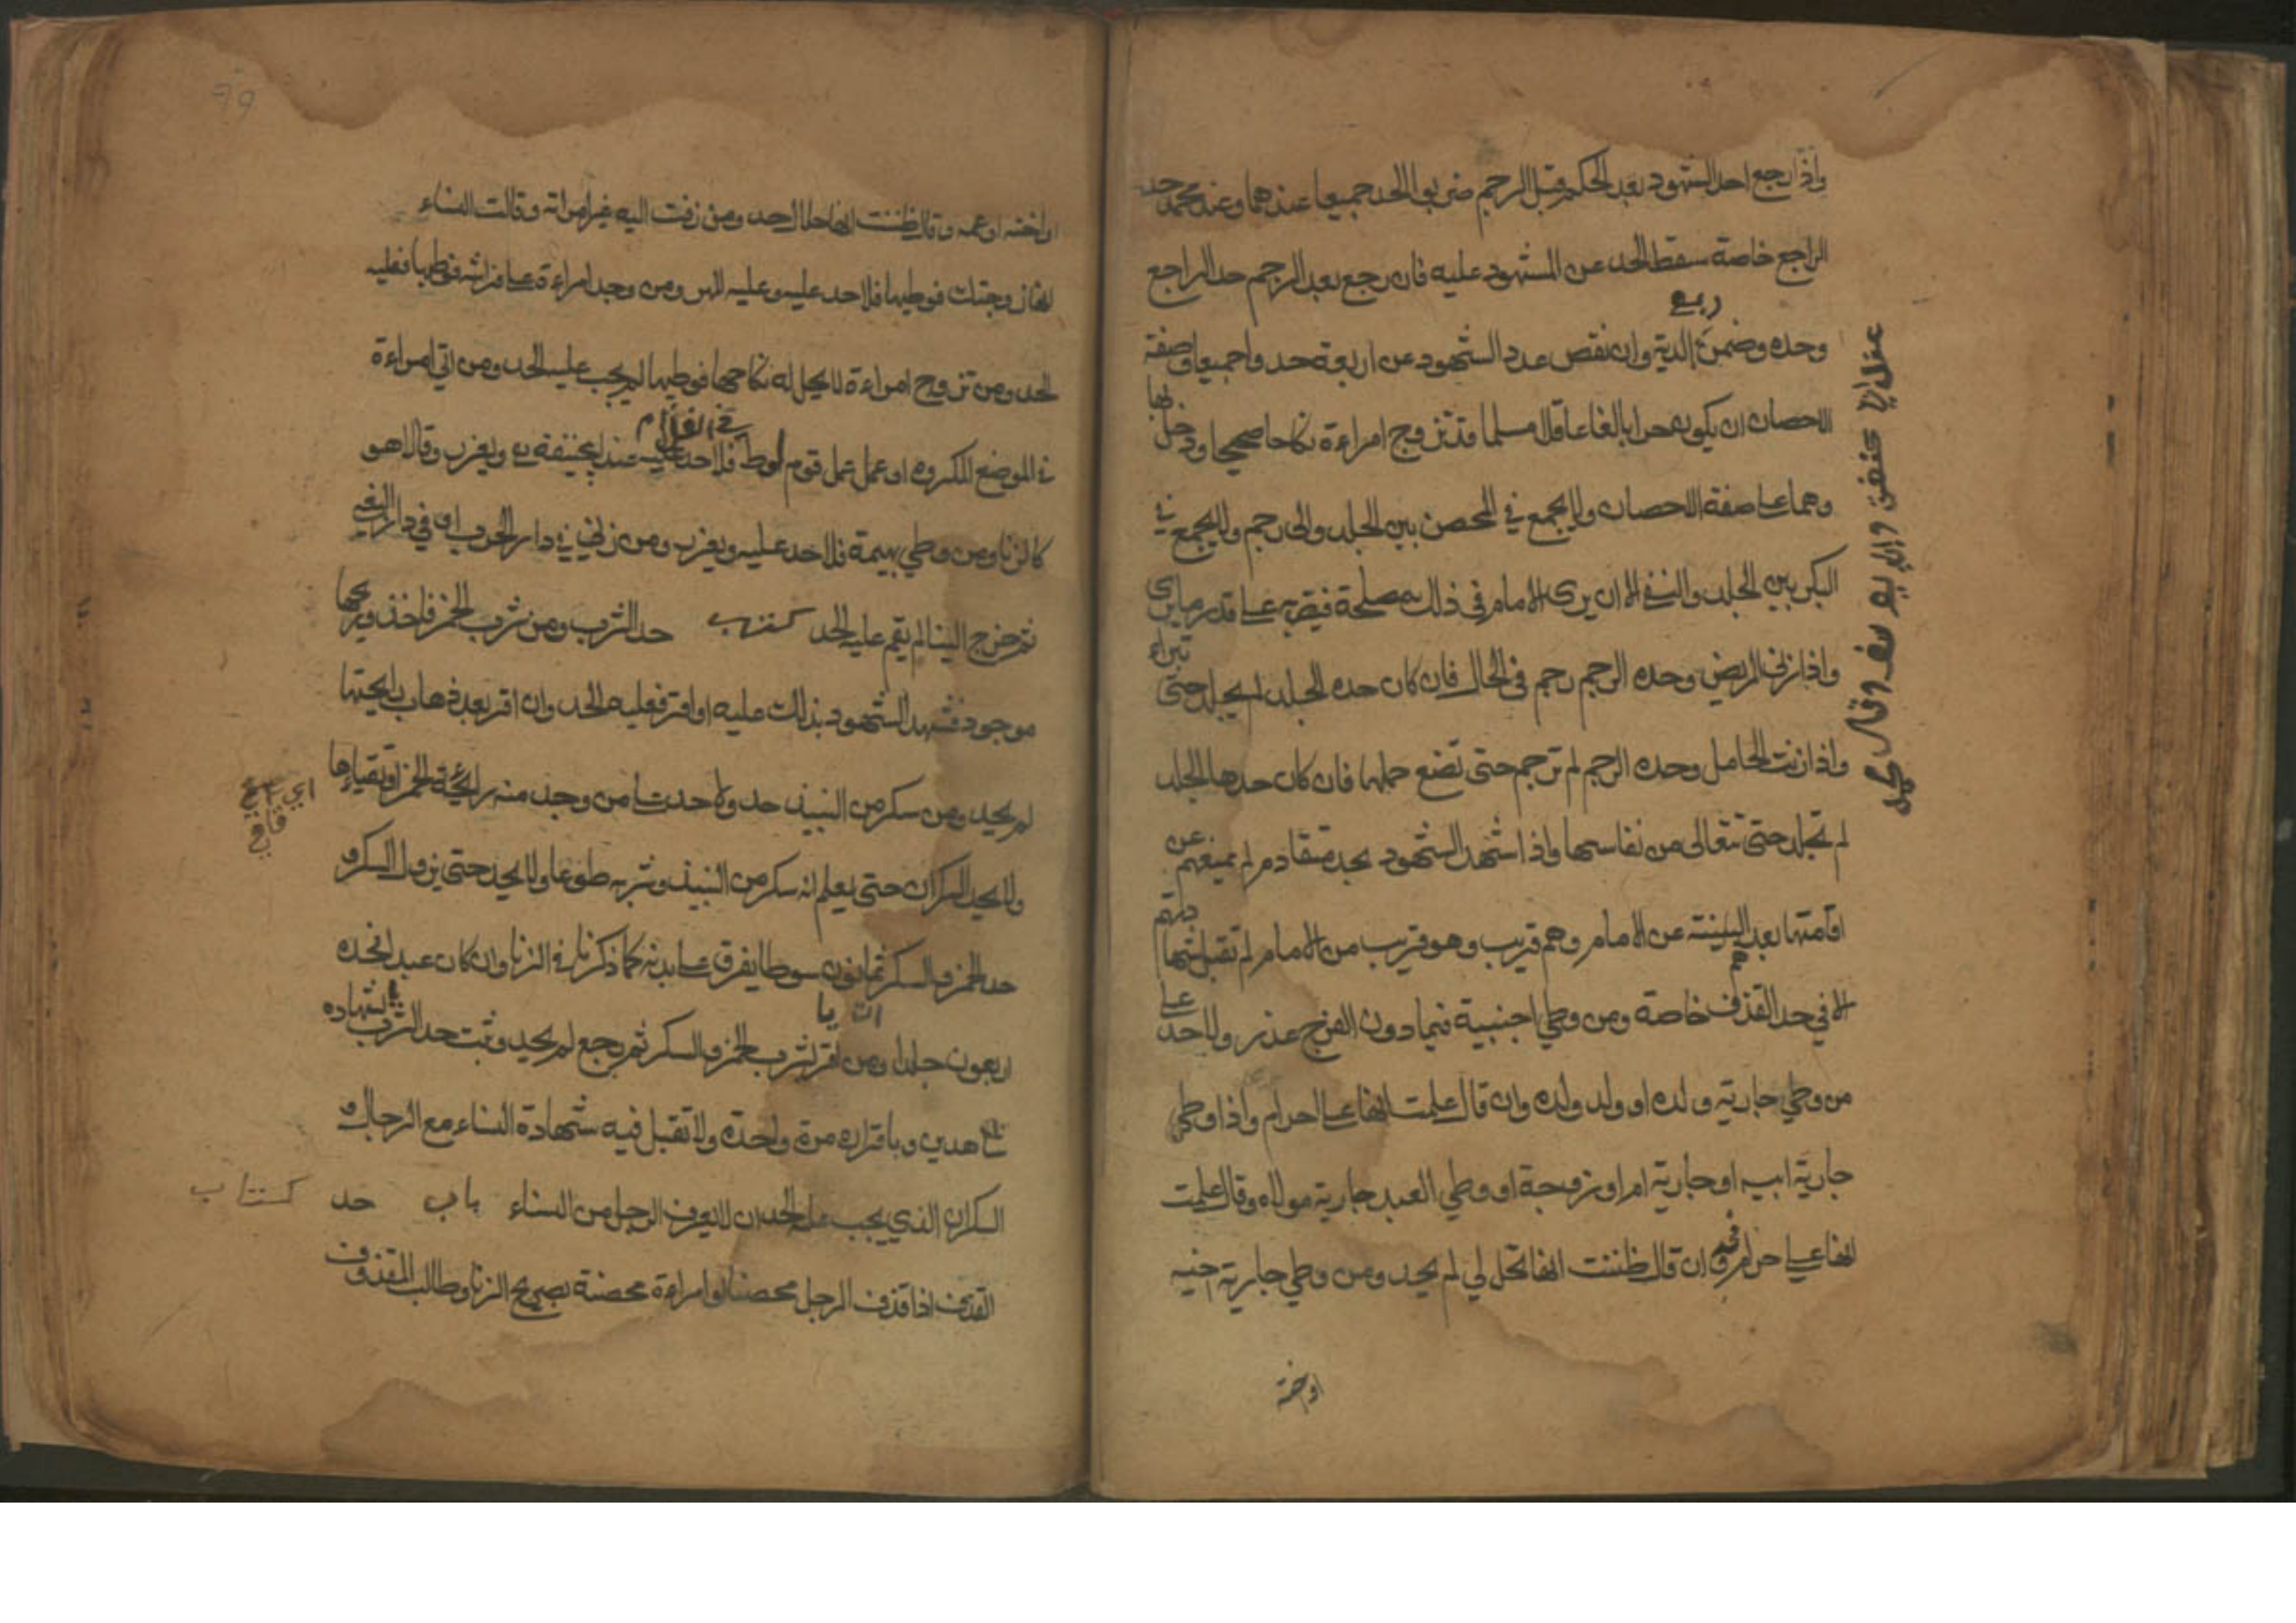 واذا رجع احد الشهود بعد الحكم قبل الرجم ضربوا الحد جميعا عندهما وعند محمد حد
الراجع خاصة سقط الحد عن المشهود عليه فان رجع بعد الرجم حد الراجع
وحده وضمن ربع الدية وان نقص عدد الشهود عن اربعة حدوا جميعا وصفة
الاحصان ان يكون حرا بالغا عاقلا مسلما قد تزوج امراءة نكاحا صحيحا ودخل بها
وهما على صفة الاحصان ولا يجمع في المحصن بين الجلد والرجم ولا يجمع في
البكر بين الجلد والنفي الا ان يرى الامام في ذلك مصلحة فيغربه على قدر ما يرى
واذا زنى المريض وحده الرجم رجم في الحال فان كان حده الجلد لم يجلد حتى تبراء
واذا زنت الحامل وحده الرجم لم ترجم حتى تضع حملها فان كان حدها الجلد
لم تجلد حتى تتعالى من نفاسها واذا شهد الشهود بحد متقادم لم يمنعهم عن
اقامتها بعد البينة عن الامام وهم قريب وهو قريب من الامام لم تقبل شهادتهم
الا في حد القذف خاصة ومن وطي اجنبية فيما دون الفرج عذر ولا حد على
من وطي جارية ولده او ولد ولده وان قال علمت انها على حرام واذا وطي
جارية ابيه او جارية ام او زوجة او وطي العبد جارية مولاه وقال علمت
انها على حرام حد وان قال ظننت انها تحل لي لم يحد ومن وطي جارية اخيه
اوخته
اواخته او عمه وقال ظننت انها حلال حد ومن زفت اليه غير امراته وقالت النساء
انها زوجتك فوطيها فلا حد عليه وعليه المهر ومن وجد امراءة على فراشه فوطيها فعليه
الحد ومن تزوج امراءة لا يحل له نكاحها فوطيها لم يجب عليه الحد ومن اتي امراءة
في الموضع المكروه او عمل عمل قوم لوط فلا حد عليه عند ابي حنيفة ويعزر وقالا هو
كالزنا ومن وطي بهيمة فلا حد عليه ويعزر ومن زني في دار الحرب او في دار البغي
ثم خرج الينا لم يقم عليه الحد كتاب حد الشرب ومن شرب الخمر فاخذ وريحها
موجود فشهد الشهود بذلك عليه او اقر فعليه الحد وان اقر بعد ذهاب رايحتها
لم يحد ومن سكر من النبيذ حد ولا حد على من وجد منه رايحة الخمر او تقياءها
ولا يحد السكران حتى يعلم انه سكر من النبيذ وشربه طوعا ولا يحد حتى يزول السكر و
حد الخمر والسكر ثمانون سوطا يفرق على بدنه كما ذكرنا في الزنا وان كان عبدا فحده
اربعون جلدا ومن اقر بشرب الخمر والسكر ثم رجع لم يحد وثبت حد الشرب بشهاده
شاهدين وباقراره مرة واحدة ولا تقبل فيه شهادة النساء مع الرجال و
السكران الذي يجب عليه الحد ان لا يعرف الرجل من النساء باب حد كتاب
القذف اذا قذف الرجل محصنا او امراءة محصنة بصريح الزنا وطالب المقذوف